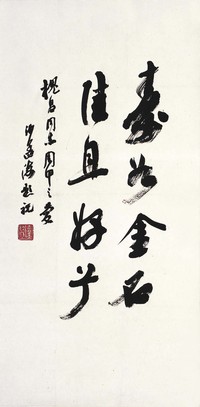 壽如金石
佳且好兮
同志周甲之慶
沙孟海題祝